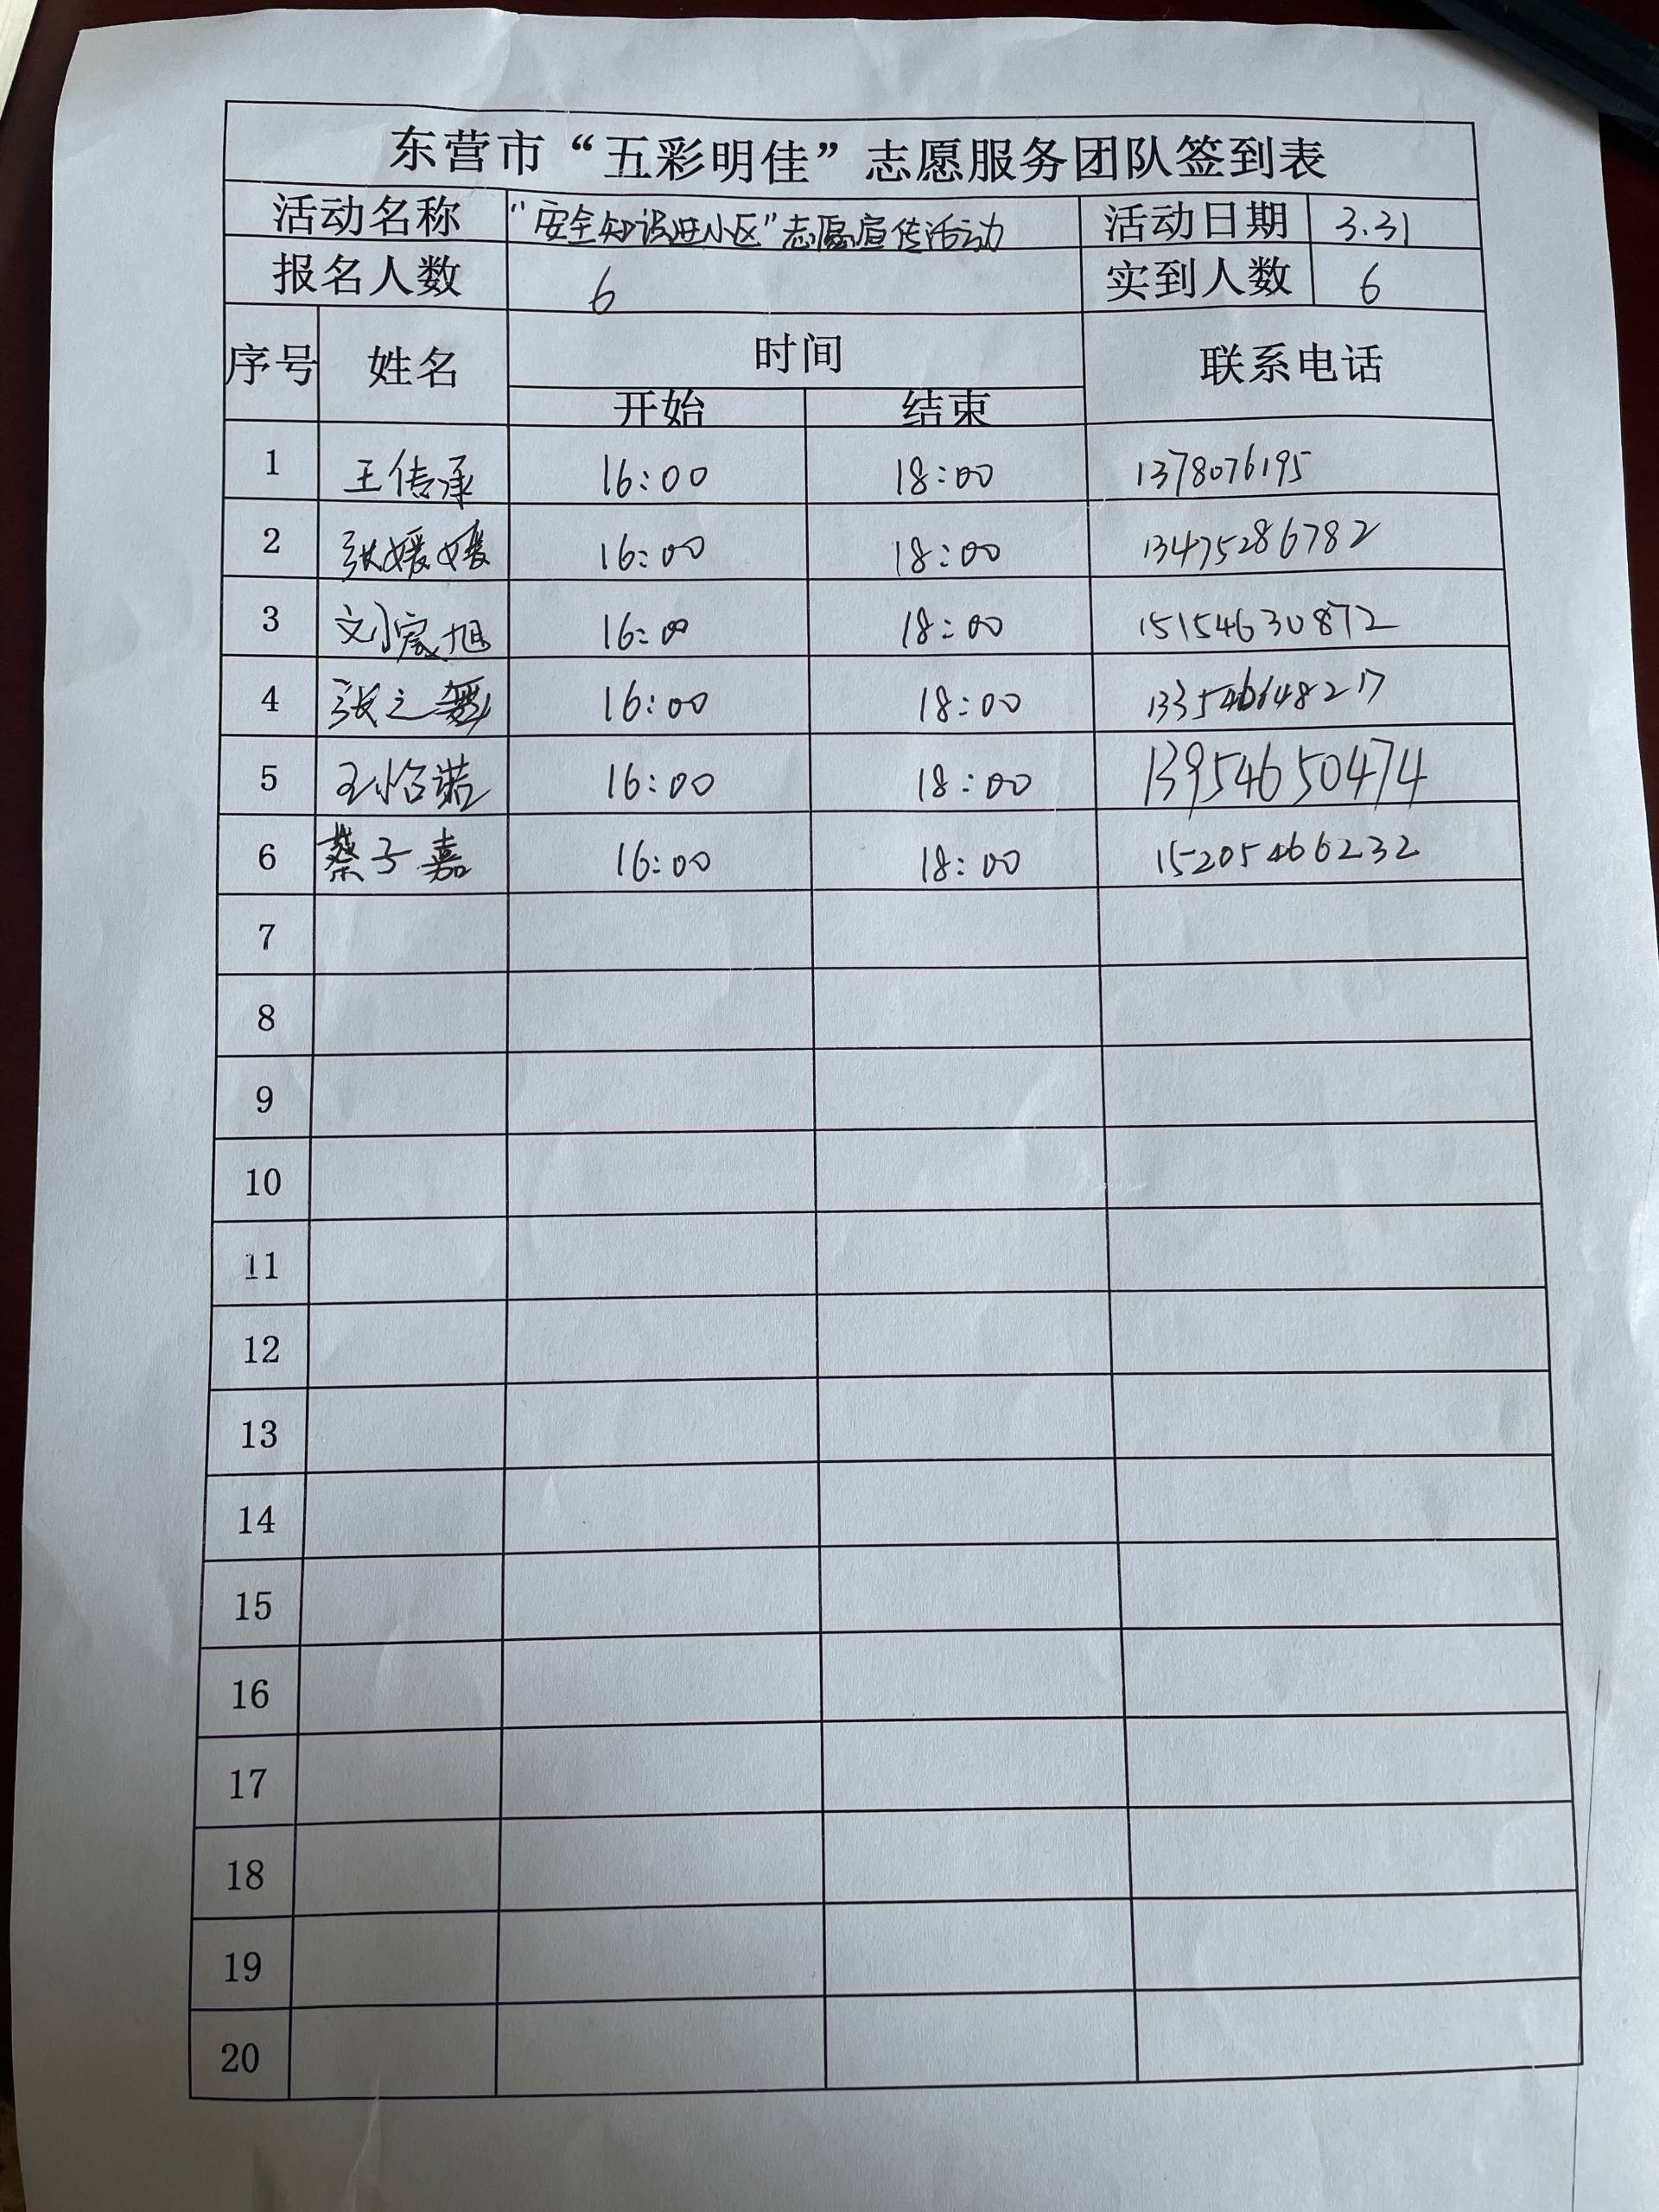 东营市“五彩明佳”志愿服务团队签到表
活动名称 “安全知识进小区”志愿宣传活动 活动日期 3.31
报名人数 6 实到人数 6
序号 姓名 时间 联系电话
开始 结束
1 王传承 16:00 18:00 1378076195
2 张媛媛 16:00 18:00 13475286782
3 刘宸旭 16:00 18:00 15154630872
4 张之 16:00 18:00
5 王怡诺 16:00 18:00 13954650474
6 蔡子嘉 16:00 18:00 15205466232
7
8
9
10
11
12
13
14
15
16
17
18
19
20